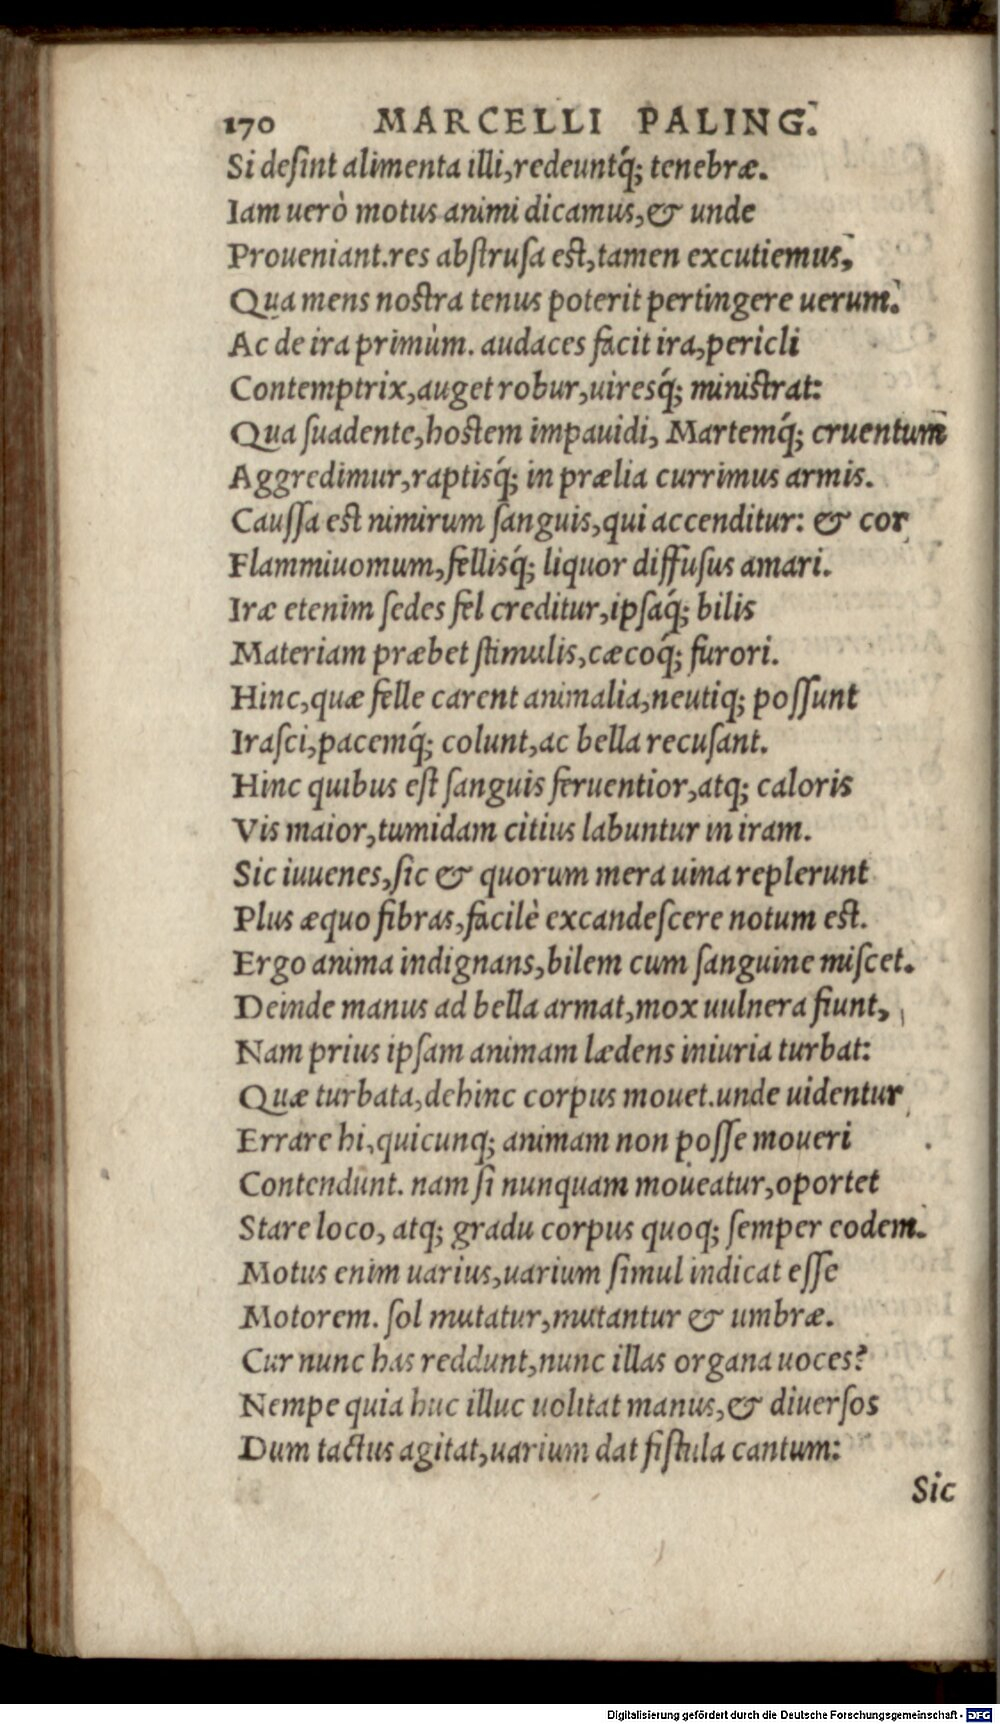 170 MARCELLI PALING.
Si desint alimenta illi, redeuntq́; tenebræ.
Iam uerò motus animi dicamus, & unde
Proueniant. res abstrusa est, tamen excutiemus,
Qua mens nostra tenus poterit pertingere uerum.
Ac de ira primùm. audaces facit ira, pericli
Contemptrix, auget robur, uiresq́; ministrat:
Qua suadente, hostem impauidi, Martemq́; cruentum
Aggredimur, raptisq́; in prælia currimus armis.
Caussa est nimirum sanguis, qui accenditur: & cor
Flammiuomum, fellisq́; liquor diffusus amari.
Iræ etenim sedes fel creditur, ipsaq́; bilis
Materiam præbet stimulis, cæcoq́; furori.
Hinc, quæ felle carent animalia, neutiq; possunt
Irasci, pacemq́; colunt, ac bella recusant.
Hinc quibus est sanguis feruentior, atq; caloris
Vis maior, tumidam citius labuntur in iram.
Sic iuuenes, sic & quorum mera uina replerunt
Plus æquo fibras, facilè excandescere notum est.
Ergo anima indignans, bilem cum sanguine miscet.
Deinde manus ad bella armat, mox uulnera fiunt,
Nam prius ipsam animam lædens iniuria turbat:
Quæ turbata, dehinc corpus mouet. unde uidentur
Errare hi, quicunq; animam non posse moueri
Contendunt. nam si nunquam moueatur, oportet
Stare loco, atq; gradu corpus quoq; semper eodem.
Motus enim uarius, uarium simul indicat esse
Motorem. sol mutatur, mutantur & umbræ.
Cur nunc has reddunt, nunc illas organa uoces?
Nempe quia huc illuc uolitat manus, & diuersos
Dum tactus agitat, uarium dat fistula cantum:
Sic
Digitalisierung gefördert durch die Deutsche Forschungsgemeinschaft - DFG